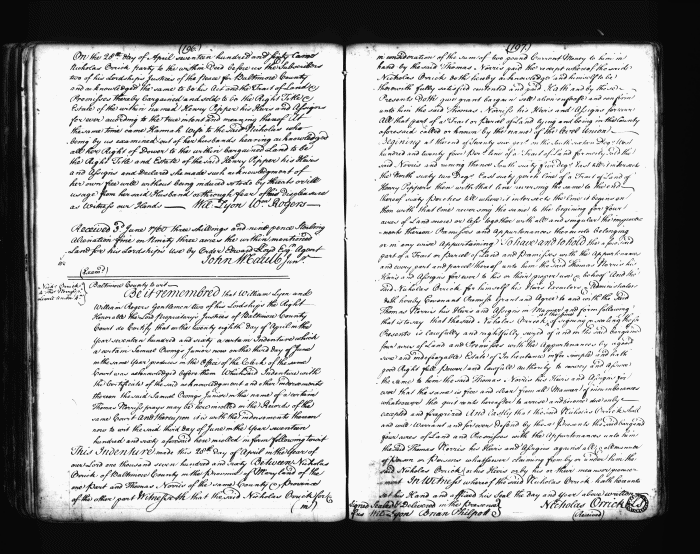 (196)
On the 28th day of April seventeen hundred and sixty Came
Nicholas Orrick party to the within Deed before us the Subscribers
two of his Lordships Justices of the peace for Baltimore County
and acknowledged the same to be his Act and the Tract of Land &
Premises thereby bargained and sold to be the Right Title &
Estate of the within named Henry Tipper his Heirs and Assigns
for ever according to the true intent and meaning thereof At
the same time came Hannah Wife to the said Nicholas who
being by us examined out of her husbands hearing acknowledged
all her Right of Dower to the within bargained Land to be
the Right Title and Estate of the said Henry Tipper his Heirs
and Assigns and Declared she made such acknowledgment of
her own free will without being induced to by threats or ill
usage from her said Husband or through fear of his displeasure
as Witness our Hands Wm Lyon Wm Rogers
Received 3d June 1760 three shillings and nine pence Sterling
Alienation fine on Ninety three acres the within mentioned
Land for his Lordships use by order Edward Lloyd Esqr Agent
John
(Exam'd)
Baltimore County to wit
Nichs Orrick
Be it remembred that William Lyon and
William Rogers Gentlemen two of his Lordships the Right
Honorable the Lord Proprietarys Justices of Baltimore County
Court do Certify that on the twenty eighth day of April in the
Year seventeen hundred and sixty a certain Indenture which
a certain Samuel Owings Junior now on the third day of June
in the same Year produces in the Office of the Clerk of the same
Court was acknowledged before them Which said Indenture with
the Certificate of the said acknowledgment and other indorsements
thereon the said Samuel Owings Junior in the name of a certain
Thomas Norris prays may be Inrolled in the Records of the
same Court And thereupon it is with the indorsements thereon
now to wit the said third day of June in the Year seventeen
hundred and sixty aforesaid here inrolled in form following to wit
This Indenture made this 28th day of April in the Year of
our Lord one thousand seven hundred and sixty Between Nicholas
Orrick of Baltimore County in the province of Maryland of the
one part and Thomas Norris of the same County & province
of the other part Witnesseth that the said Nicholas Orrick for &
(in)
(197)
in consideration of the sum of two pound Current Money to him in
hand by the said Thomas Norris paid the receipt whereof the said
Nicholas Orrick doth hereby acknowledge and himself to be
therewith fully satisfied contented and paid Hath and by these
Presents Doth give grant bargain sell alien enfeoff and confirm
unto him the said Thomas Norris his Heirs and Assigns forever
All that part of a Tract or Parcel of Land lying and being in the County
aforesaid called or known by the name of the
Begining at the end of twenty our part in the South sixteen Degs West
hundred and twenty four Pes line of a Tract of Land formerly sold the
said Norris and runing thence South sixty five Degs East till it intersects
the North sixty two Degs East sixty perch line of a Tract of Land of
Henry Tippers then with that line reversing the same to the end
thereof sixty Perches till where it intersects the line it begins on
then with that line reversing the same to the begining for four
Acres of Land more or less together with all and singular the improve-
ments thereon Premises and Appurtenances thereunto belonging
or in any wise Appurtaining To have and to hold the aforesaid
part of a Tract or Parcel of Land and Premises with the Appurtenances
and every part and parcel thereof unto him the said Thomas Norris his
Heirs and Assigns for ever to his or their proper use & behoof And the
said Nicholas Orrick for himself his Heirs Executors & Administrators
doth hereby Covenant Promise Grant and Agree to and with the said
Thomas Norris his Heirs and Assigns in Manner and form following
that is to say that the said Nicholas Orrick at the time of signing & sealing these
Presents is lawfully and rightfully seized of and in the said bargained
four acres of Land and Premises with the Appurtenances by a good
sure and indefeazable Estate of Inheritance in fee simple and hath
good Right full power and lawful authority to convey and assure
the same to him the said Thomas Norris his Heirs and Assigns for
ever that the same is free and clear from all Manner of incumbrances
whatsoever the quit rents hereafter to arrive and become due only
excepted and foreprized And Lastly that the said Nicholas Orrick shall
and will Warrant and forever Defend by these Presents the said bargained
four acres of Land and Premises with the Appurtenances unto him
the said Thomas Norris his Heirs and Assigns against all & all manner
of person or Persons whatsoever claiming from by or under him the
said Nicholas Orrick or his Heirs or by his or their means or procure-
ment In Witness whereof the said Nicholas Orrick hath hereunto
set his Hand and affixed his Seal the day and Year above written
Signed Sealed & Delivered in the Presence of us Wm Lyon Brian Philpott
Nicholas Orrick
(Received)